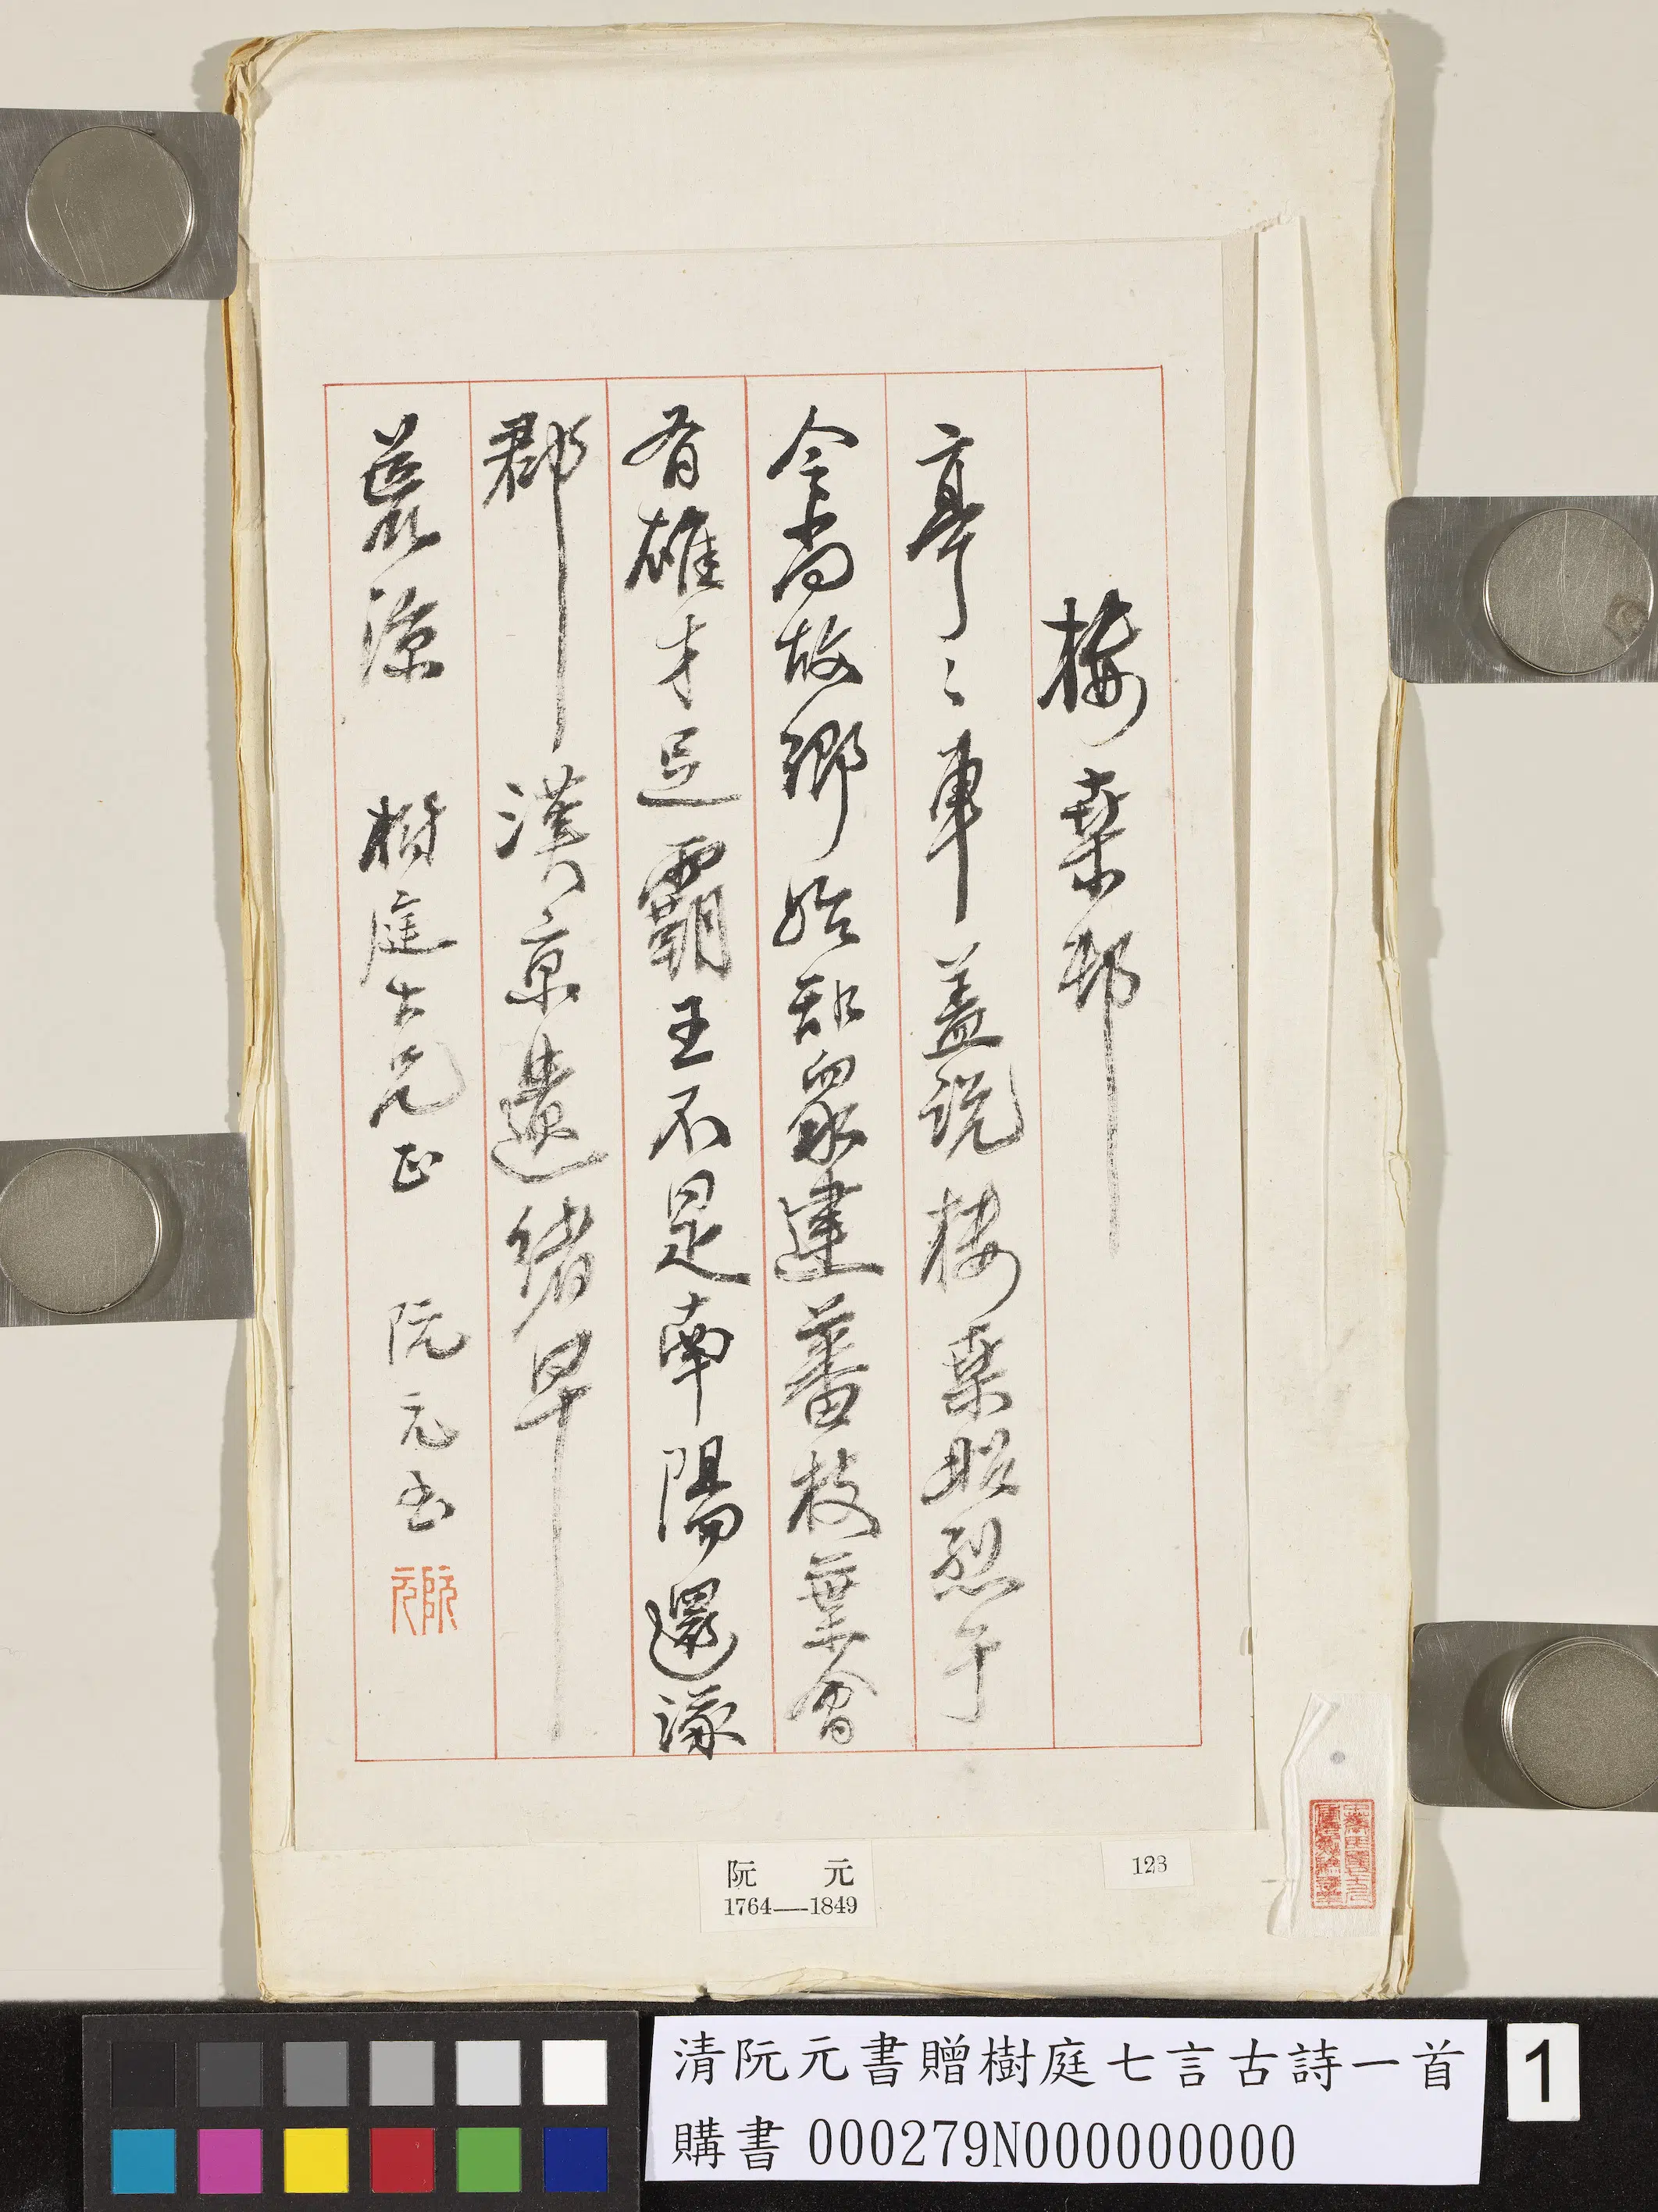 樓桒邨
亭〻車蓋說樓桒昭烈于
今尚故鄉始知眾建蕃枝葉會
有雄才足霸王不是南陽還涿
郡漢京遺緒早
荒涼 樹庭大兄正 阮元書
阮元
阮元
1764—1849
123
清阮元書贈樹庭七言古詩一首
購書 000279N000000000
1